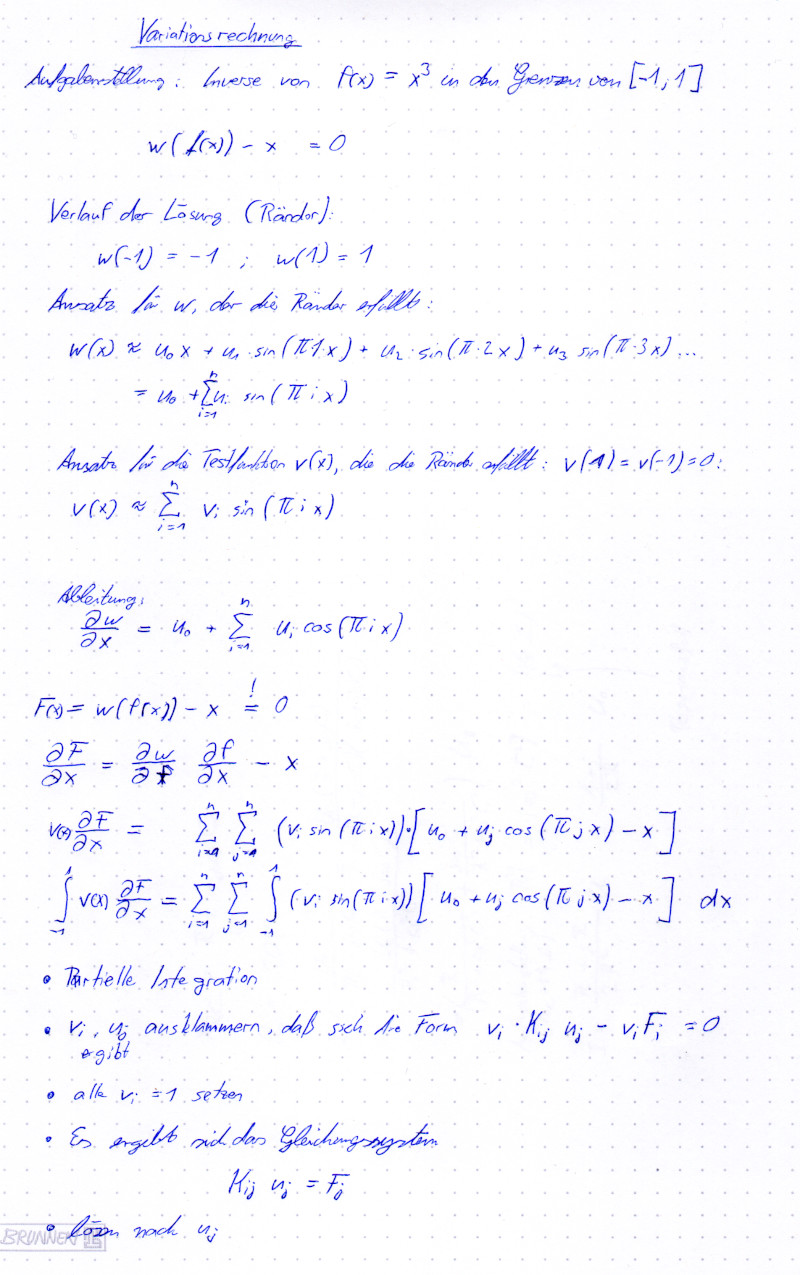 Variationsrechnung
Aufgabenstellung: Inverse von f(x) = x³ in den Grenzen von [-1, 1]
w(f(x)) - x = 0
Verlauf der Lösung (Ränder):
w(-1) = -1 ; w(1) = 1
Ansatz für w, der die Ränder erfüllt:
w(x) ≈ u₀ x + u₁ · sin(π 1·x) + u₂ · sin(π · 2x) + u₃ sin(π · 3x) ...
= u₀ + ∑_{i=1}^{n} uᵢ sin(π i x)
Ansatz für die Testfunktion v(x), die die Ränder erfüllt: v(1) = v(-1) = 0:
v(x) ≈ ∑_{i=1}^{n} vᵢ sin(π i x)
Ableitung:
∂w/∂x = u₀ + ∑_{i=1}^{n} uᵢ cos(π i x)
F(x) = w(f(x)) - x =! 0
∂F/∂x = ∂w/∂f ∂f/∂x - x
v(x) ∂F/∂x = ∑_{i=1}^{n} ∑_{j=1}^{n} (vᵢ sin(π i x)) · [u₀ + uⱼ cos(π j x) - x]
∫_{-1}^{1} v(x) ∂F/∂x = ∑_{i=1}^{n} ∑_{j=1}^{n} ∫_{-1}^{1} (vᵢ sin(π i x)) [u₀ + uⱼ cos(π j x) - x] dx
• Partielle Integration
• vᵢ, uⱼ ausklammern, daß sich die Form vᵢ · Kᵢⱼ uⱼ - vᵢ Fᵢ = 0
ergibt
• alle vᵢ = 1 setzen
• Es ergibt sich das Gleichungssystem
Kᵢⱼ uⱼ = Fⱼ
• lösen nach uⱼ
BRUNNEN